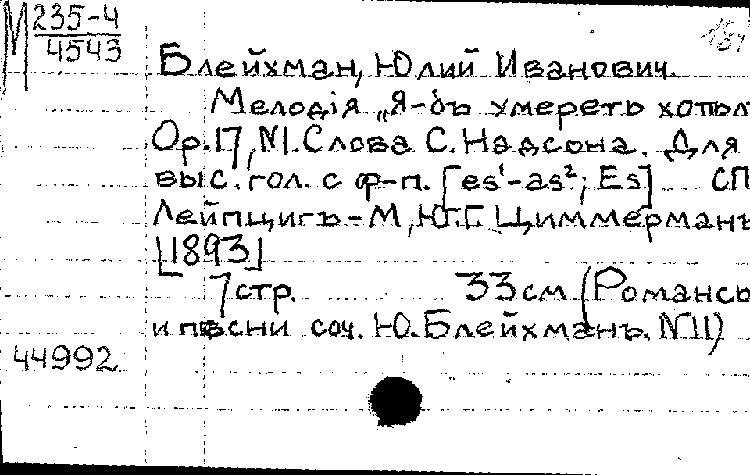 М 235-4
4543
Блейхман, Юлий Иванович.
Мелодiя „Я-бъ умереть
Ор.17, №1. Слова С. Надсона. Для
выс. гол. с ф-п. [es¹-as²; Es] СП
Лейпцигъ-М, Ю.Г. Циммерманъ
[1893]
7 стр. 33 см (Романсы
и пѣсни соч. Ю. Блейхманъ. №11)
44992